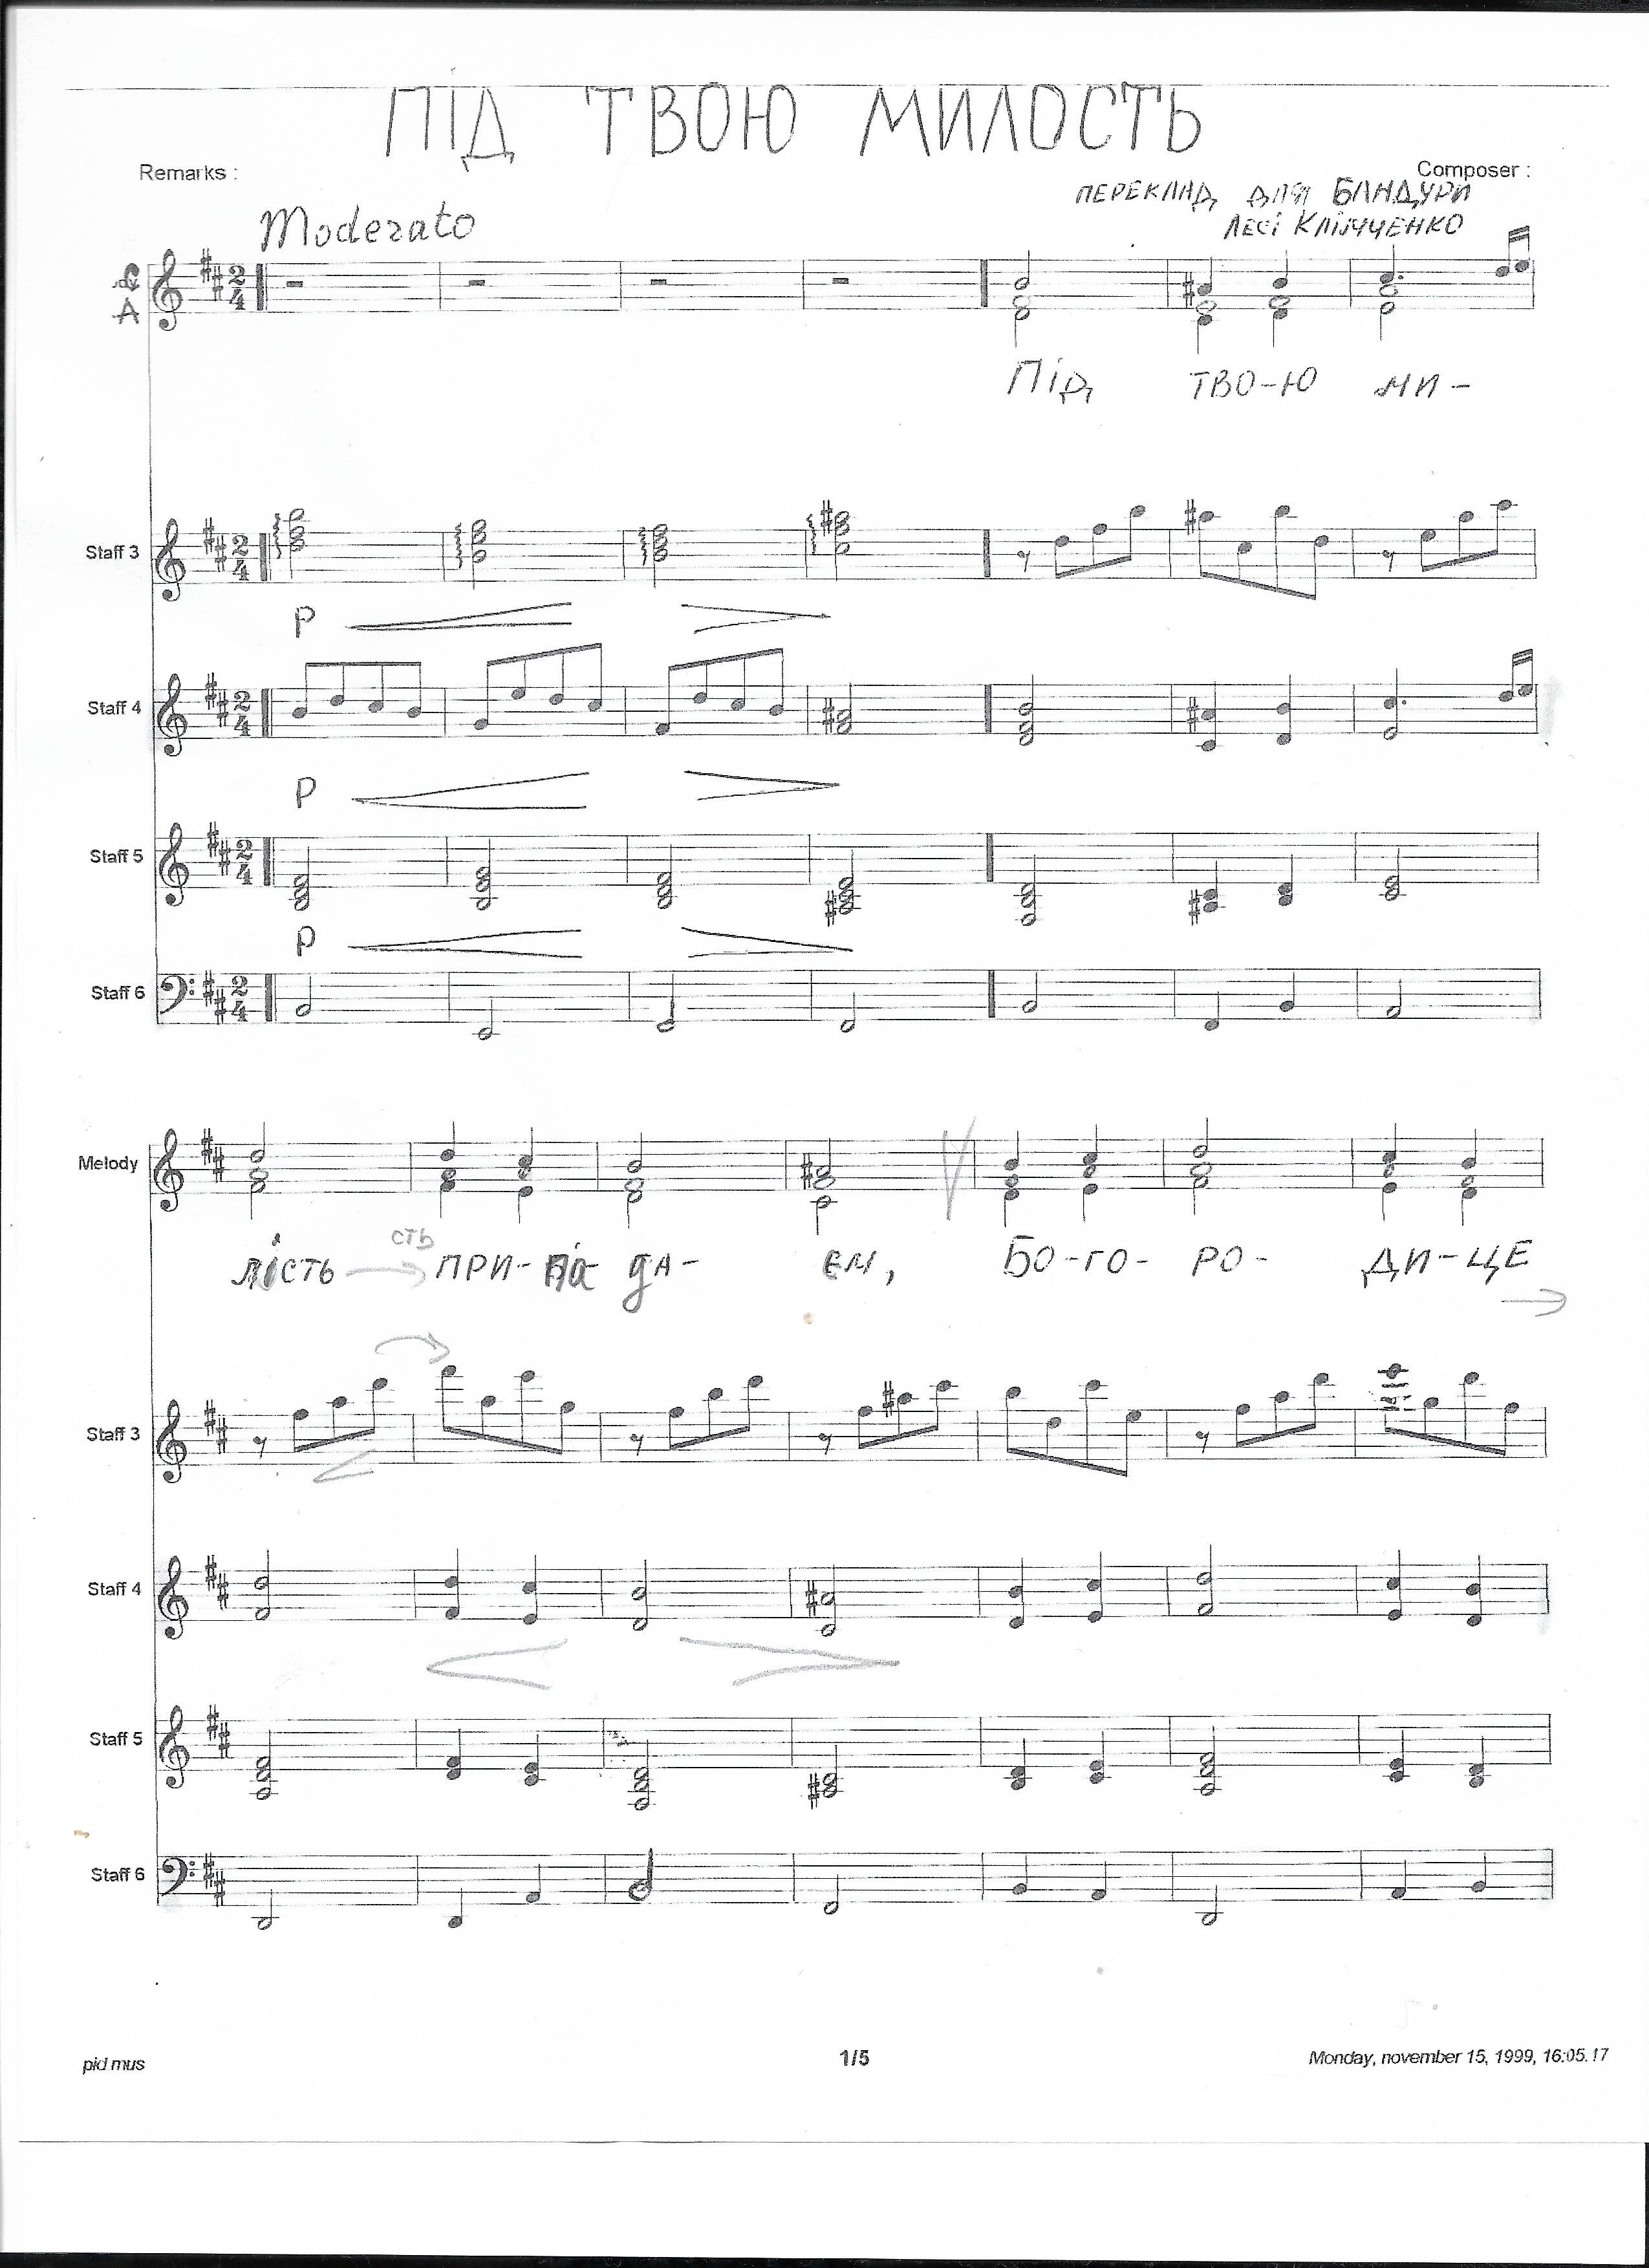 ПІД ТВОЮ МИЛОСТЬ
Remarks :
Composer :
ПЕРЕКЛАД ДЛЯ БАНДУРИ
ЛЕСІ КЛІМЧЕНКО
Moderato
A
ПІД ТВО-Ю МИ-
Staff 3
P
Staff 4
P
Staff 5
P
Staff 6
Melody
сть
ЛІСТЬ ПРИ-па дА- ЄМ, БО-ГО- РО- ДИ-ЦЕ
Staff 3
Staff 4
Staff 5
Staff 6
pid mus
1/5
Monday, november 15, 1999, 16:05.17